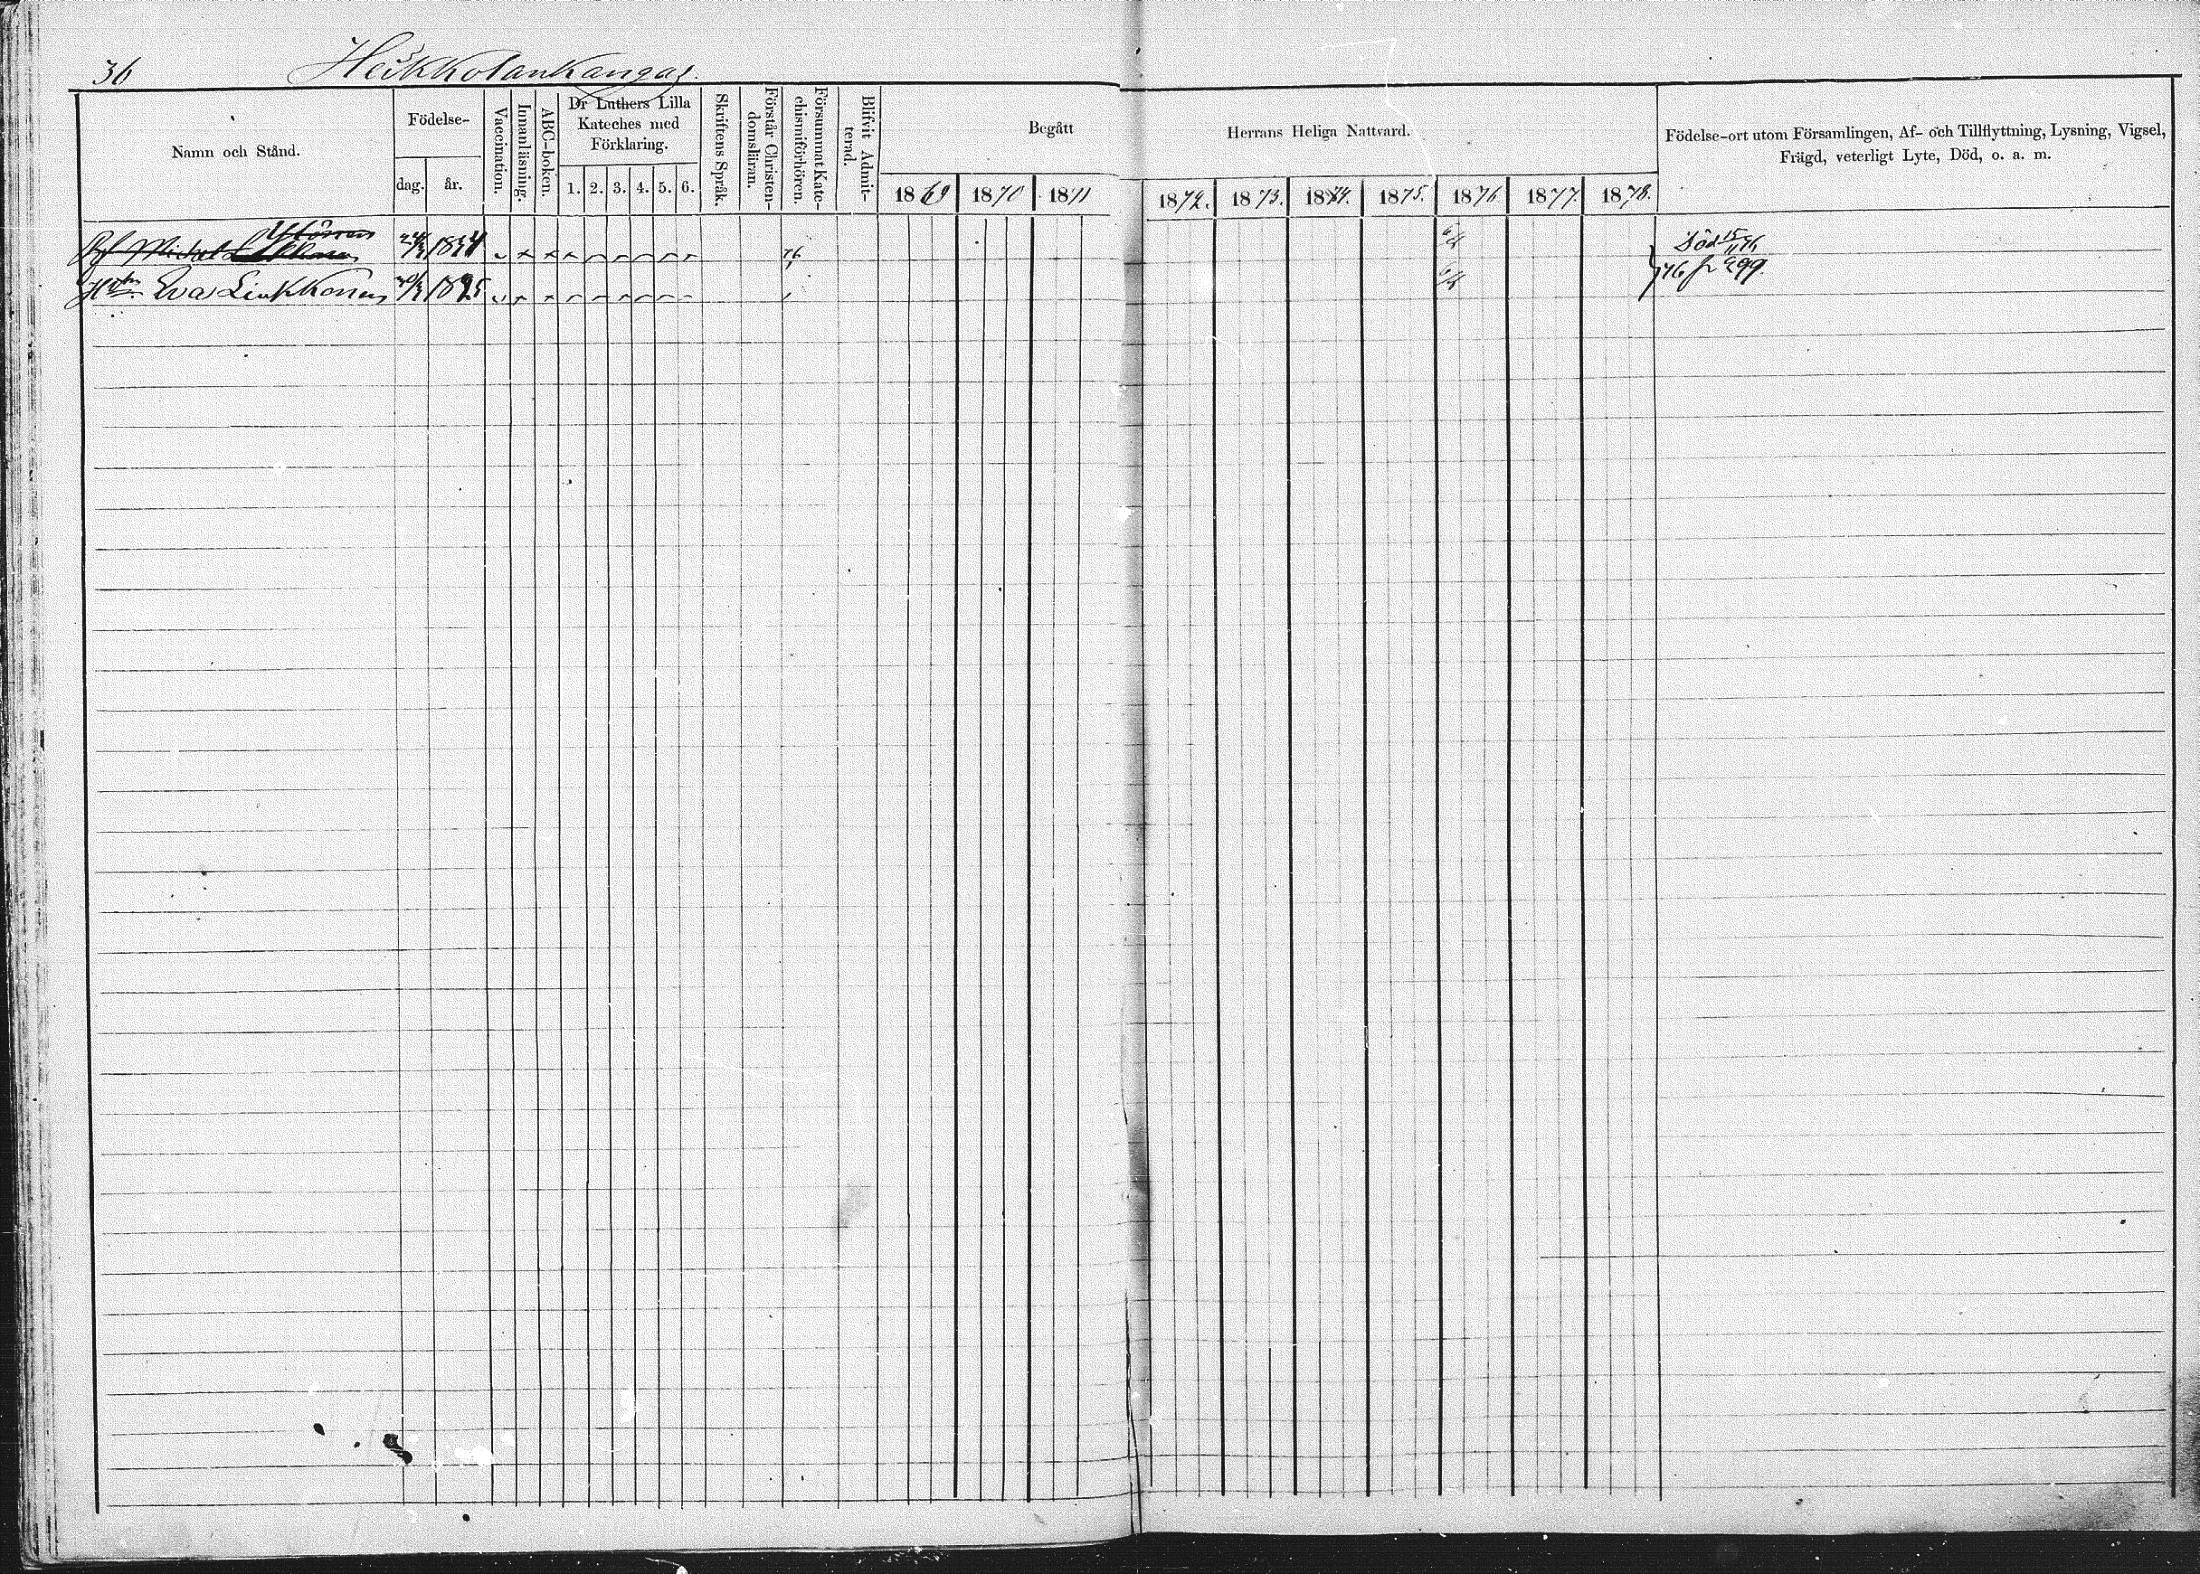 36 Heikkolankangas.
Namn och Stånd.
Födelse-
dag. år.
Vaccination.
Innanläsning.
ABC-boken.
Dr Luthers Lilla
Kateches med
Förklaring.
1. 2. 3. 4. 5. 6.
Skriftens Språk.
Förstår Christen-
domsläran.
Försummat Kate-
chismiförhören.
Blifvit Admit-
terad.
Begått Herrans Heliga Nattvard.
1869 1870 1871 1872. 1873. 1874. 1875. 1876 1877. 1878.
Födelse-ort utom Församlingen, Af- och Tillflyttning, Lysning, Vigsel,
Frägd, veterligt Lyte, Död, o. a. m.
Michel 76 6/8 Död 15/11 76
Eva Linkkonen 1825 6/8 76 fr 299.